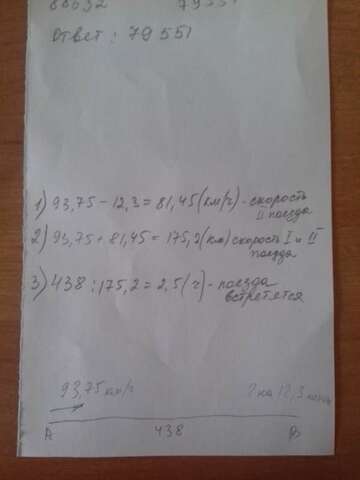 Ответ: 79551
1) 93,75 - 12,3 = 81,45 (км/ч) - скорость
II поезда
2) 93,75 + 81,45 = 175,2 (км) скорость I и II
поезда
3) 438 : 175,2 = 2,5 (ч) - поезда
встретятся
93,75 км/ч ? на 12,3
А 438 В